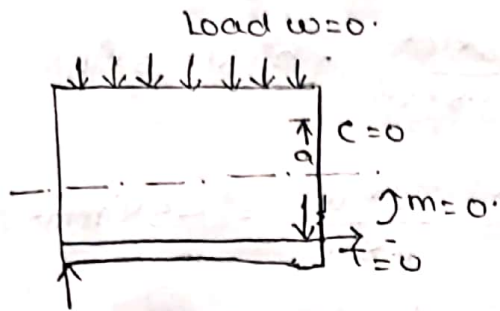 Load w=0.
c=0
a
m=0.
T=0